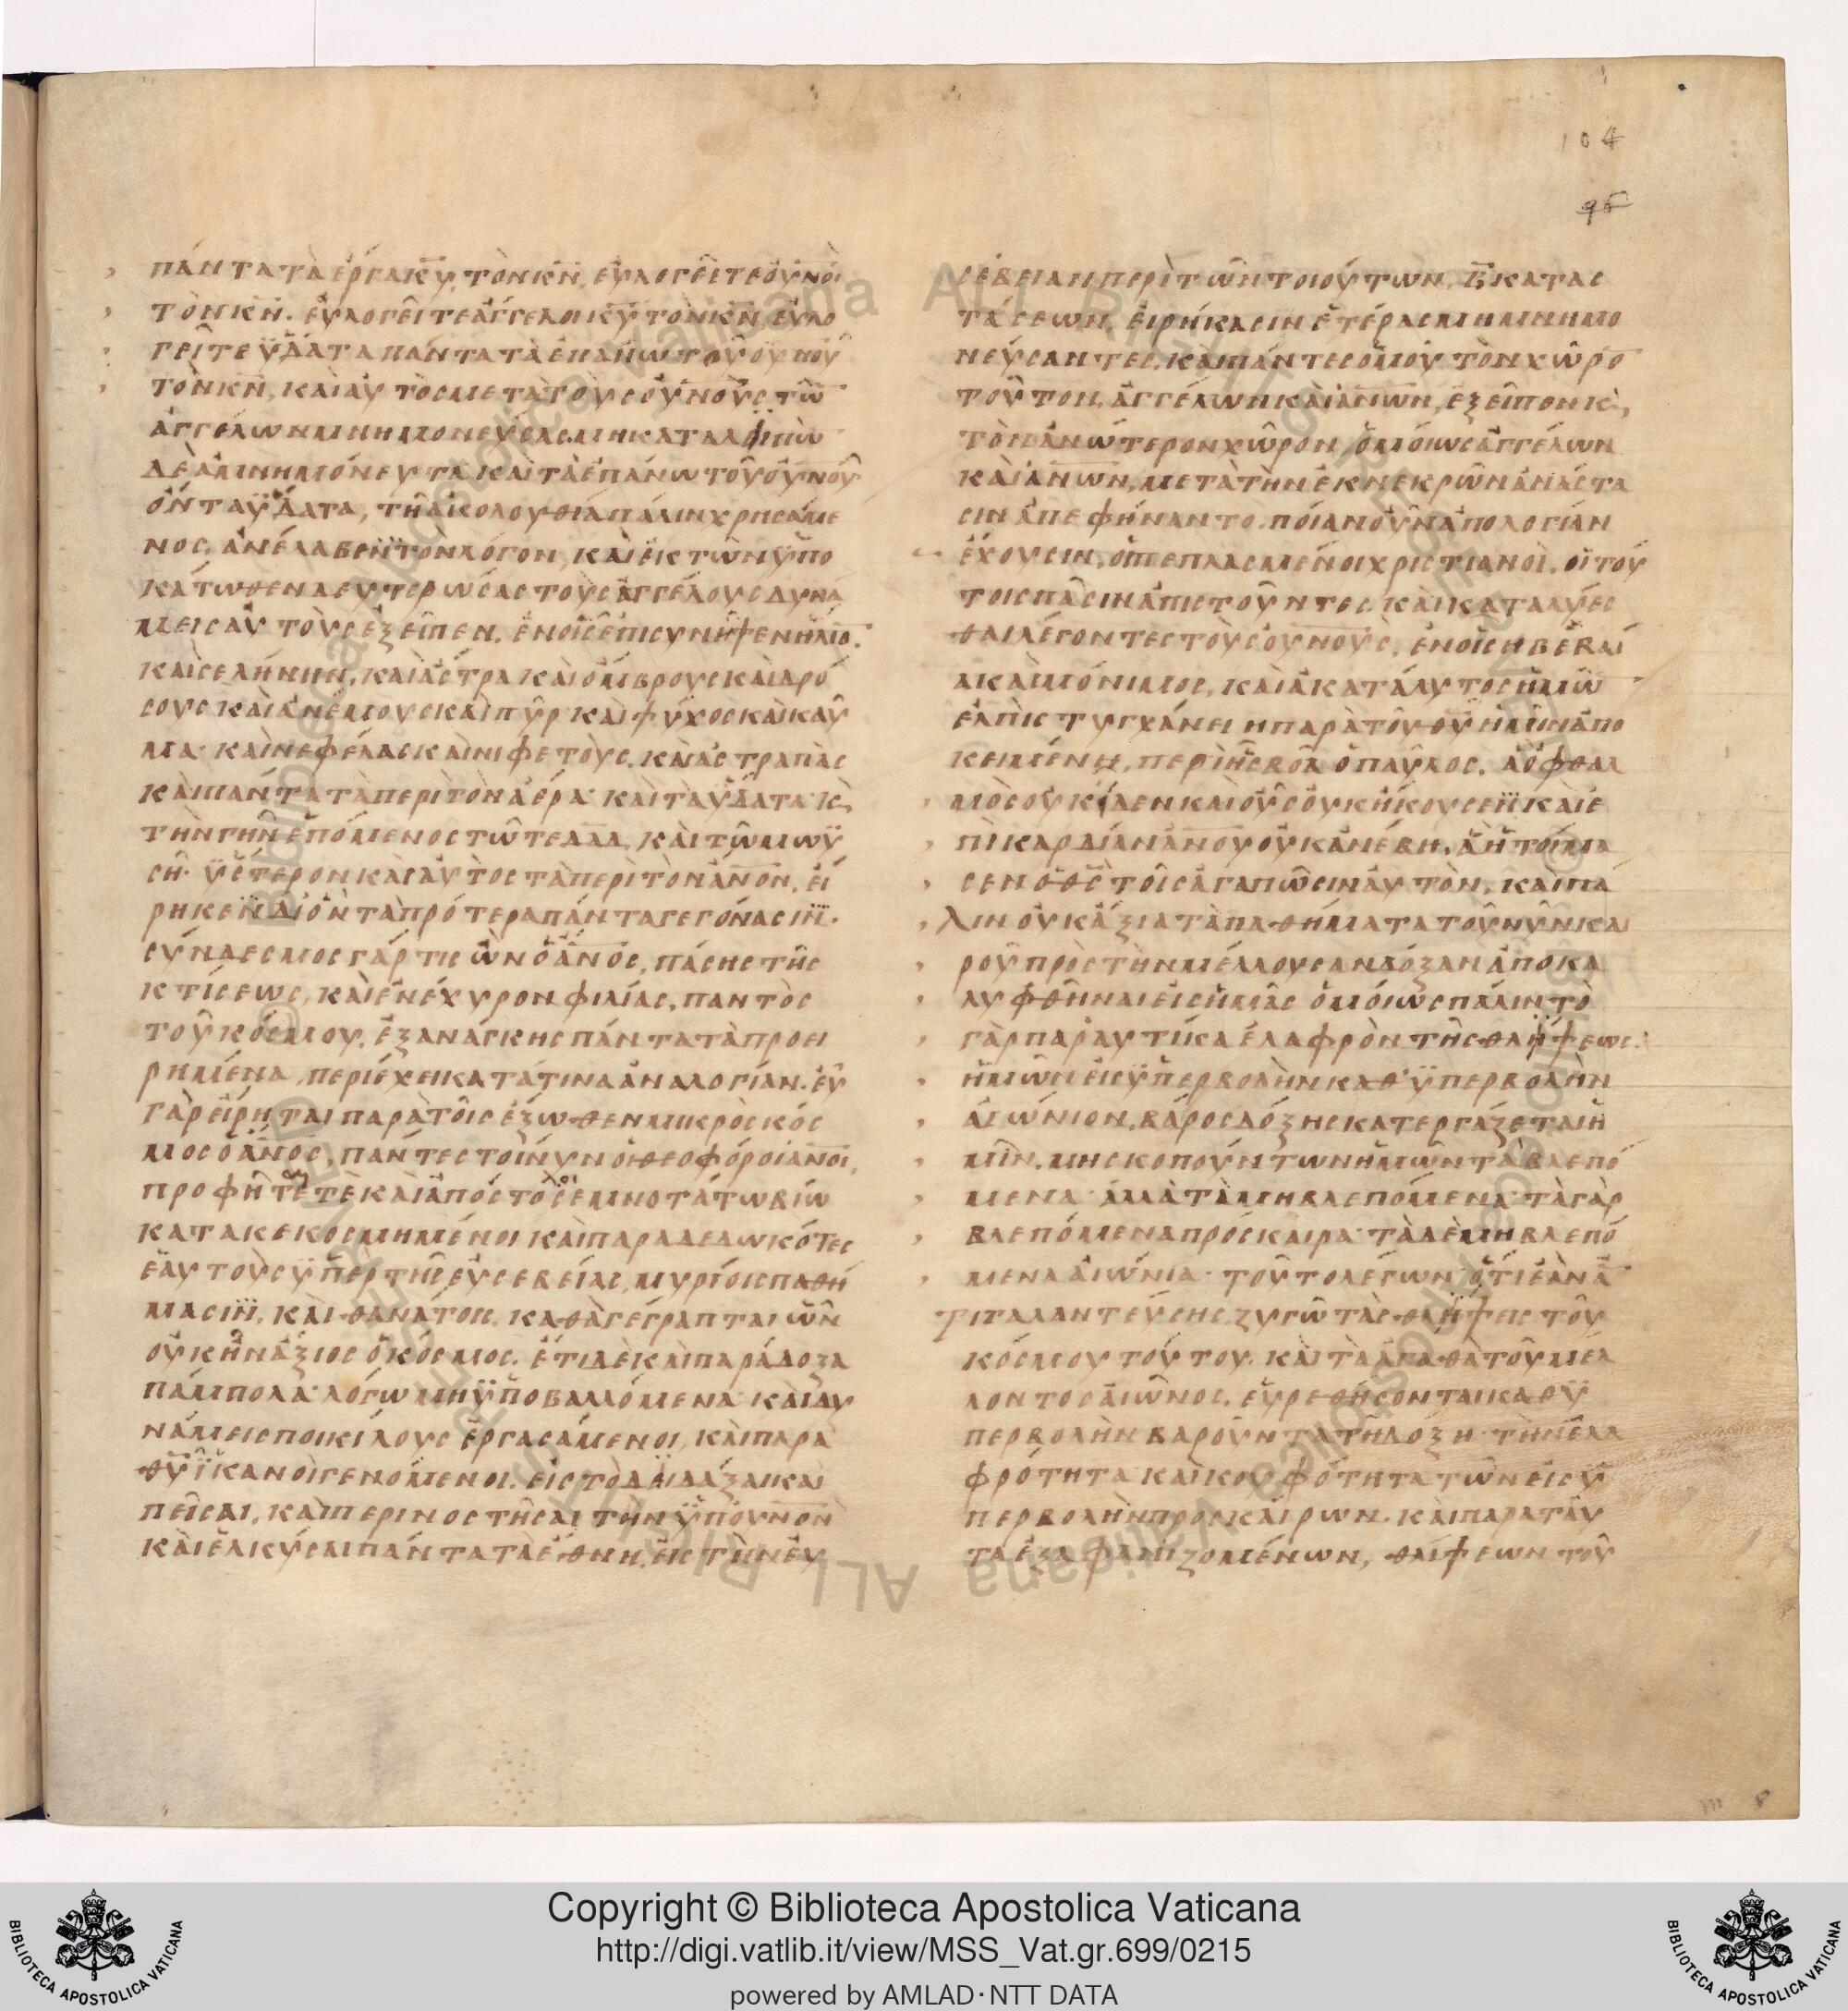 104
96
ΠΑΝΤΑΤΑΕΡΓΑΚΥ ΤΟΝΚΝ, ΕΥΛΟΓΕΙΤΕΟΥΝΟΙ
ΤΟΝΚΝ· ΕΥΛΟΓΕΙΤΕΑΓΓΕΛΟΙΚΥΤΟΝΚΝ ΕΥΛΟ
ΓΕΙΤΕΫΔΑΤΑΠΑΝΤΑΤΑΕΠΑΝΩΤΟΥΟΥΝΟΥ
ΤΟΝΚΝ, ΚΑΙΑΥΤΟΣΜΕΤΑΤΟΥΣΟΥΝΟΥΣΤΩ
ΑΓΓΕΛΩΝΜΝΗΜΟΝΕΥΣΑΣ. ΜΗΚΑΤΑΛΙΠΩ
ΔΕΑΜΝΗΜΟΝΕΥΤΑΚΑΙΤΑΕΠΑΝΩΤΟΥΟΥΝΟΥ
ΟΝΤΑΫΔΑΤΑ, ΤΗΑΚΟΛΟΥΘΙΑΠΑΛΙΝΧΡΗΣΑΜΕ
ΝΟΣ, ΑΝΕΛΑΒΕΝΤΟΝΛΟΓΟΝ, ΚΑΙΕΚΤΩΝΫΠΟ
ΚΑΤΩΘΕΝΔΕΥΤΕΡΩΣΑΣΤΟΥΣΑΓΓΕΛΟΥΣΔΥΝΑ
ΜΕΙΣΑΥΤΟΥΣΕΞΕΙΠΕΝ, ΕΝΟΙΣΕΠΙΣΥΝΗΨΕΝΗΛΙΟ·
ΚΑΙΣΕΛΗΝΗΝ, ΚΑΙΑΣΤΡΑΚΑΙΟΜΒΡΟΥΣΚΑΙΔΡΟ
ΣΟΥΣΚΑΙΑΝΕΜΟΥΣΚΑΙΠΥΡΚΑΙΨΥΧΟΣΚΑΙΚΑΥ
ΜΑ· ΚΑΙΝΕΦΕΛΑΣΚΑΙΝΙΦΕΤΟΥΣ, ΚΑΙΑΣΤΡΑΠΑΣ
ΚΑΙΠΑΝΤΑΤΑΠΕΡΙΤΟΝΑΕΡΑ· ΚΑΙΤΑΫΔΑΤΑ· Κ,
ΤΗΝΓΗΝΕΠΟΜΕΝΟΣΤΩΤΕΔΑΔ, ΚΑΙΤΩΜΩΫ
ΣΗ· ΫΣΤΕΡΟΝΚΑΙΑΥΤΟΣΤΑΠΕΡΙΤΟΝΑΝΟΝ, ΕΙ
ΡΗΚΕΝΔΙΟΝΤΑΠΡΟΤΕΡΑΠΑΝΤΑΓΕΓΟΝΑΣΙΝ·
ΣΥΝΔΕΣΜΟΣΓΑΡΤΙΣΩΝΟΑΝΟΣ, ΠΑΣΗΣΤΗΣ
ΚΤΙΣΕΩΣ, ΚΑΙΕΝΕΧΥΡΟΝΦΙΛΙΑΣ, ΠΑΝΤΟΣ
ΤΟΥΚΟΣΜΟΥ, ΕΞΑΝΑΓΚΗΣΠΑΝΤΑΤΑΠΡΟΕΙ
ΡΗΜΕΝΑ, ΠΕΡΙΕΧΕΙΚΑΤΑΤΙΝΑΑΝΑΛΟΓΙΑΝ· ΕΥ
ΓΑΡΕΙΡΗΤΑΙΠΑΡΑΤΟΙΣΕΞΩΘΕΝΜΙΚΡΟΣΚΟΣ
ΜΟΣΟΑΝΟΣ, ΠΑΝΤΕΣΤΟΙΝΥΝΟΙΘΕΟΦΟΡΟΙΑΝΟΙ,
ΠΡΟΦΗΤΤΕΚΑΙΑΠΟΣΤΟΣΕΜΝΟΤΑΤΩΒΙΩ
ΚΑΤΑΚΕΚΟΣΜΗΜΕΝΟΙΚΑΙΠΑΡΑΔΕΔΩΚΟΤΕΣ
ΕΑΥΤΟΥΣΫΠΕΡΤΗΣΕΥΣΕΒΕΙΑΣ, ΜΥΡΙΟΙΣΠΑΘΗ
ΜΑΣΙΝ, ΚΑΙΘΑΝΑΤΟΙΣ, ΚΑΘΑΓΕΓΡΑΠΤΑΙΩΝ
ΟΥΚΗΝΑΞΙΟΣΟΚΟΣΜΟΣ· ΕΤΙΔΕΚΑΙΠΑΡΑΔΟΞΑ
ΠΑΜΠΟΛΑ· ΛΟΓΩΜΗΫΠΟΒΑΛΛΟΜΕΝΑ· ΚΑΙΔΥ
ΝΑΜΕΙΣΠΟΙΚΙΛΟΥΣΕΡΓΑΣΑΜΕΝΟΙ, ΚΑΙΠΑΡΑ
ΘΥΪΚΑΝΟΙΓΕΝΟΜΕΝΟΙ· ΕΙΣΤΟΔΙΔΑΞΑΙΚΑΙ
ΠΕΙΣΑΙ, ΚΑΙΠΕΡΙΝΟΣΤΗΣΑΙΤΗΝΫΠΟΥΝΟΝ
ΚΑΙΕΛΚΥΣΑΙΠΑΝΤΑΤΑΕΘΝΗ, ΕΙΣΤΗΝΕΥ
ΣΕΒΕΙΑΝΠΕΡΙΤΩΝΤΟΙΟΥΤΩΝ, Β̅ΚΑΤΑΣ
ΤΑΣΕΩΝ, ΕΙΡΗΚΑΣΙΝΕΤΕΡΑΣΜΗΜΝΗΜΟ
ΝΕΥΣΑΝΤΕΣ, ΚΑΙΠΑΝΤΕΣΟΜΟΥΤΟΝΧΩΡΟ
ΤΟΥΤΟΝ, ΑΓΓΕΛΩΝΚΑΙΑΝΩΝ, ΕΞΕΙΠΟΝΚ,
ΤΟΝΑΝΩΤΕΡΟΝΧΩΡΟΝ, ΟΜΟΙΩΣΑΓΓΕΛΩΝ
ΚΑΙΑΝΩΝ, ΜΕΤΑΤΗΝΕΚΝΕΚΡΩΝΑΝΑΣΤΑ
ΣΙΝΑΠΕΦΗΝΑΝΤΟ· ΠΟΙΑΝΟΥΝΑΠΟΛΟΓΙΑΝ
ΕΧΟΥΣΙΝ, ΟΙΠΕΠΛΑΣΜΕΝΟΙΧΡΙΣΤΙΑΝΟΙ, ΟΙΤΟΥ
ΤΟΙΣΠΑΣΙΝΑΠΙΣΤΟΥΝΤΕΣ, ΚΑΙΚΑΤΑΛΥΕΣ
ΘΑΙΛΕΓΟΝΤΕΣΤΟΥΣΟΥΝΟΥΣ, ΕΝΟΙΣΗΒΕΒΑΙ
ΑΚΑΙΜΟΝΙΜΟΣ, ΚΑΙΑΚΑΤΑΛΥΤΟΣΗΜΩ
ΕΛΠΙΣΤΥΓΧΑΝΕΙΗΠΑΡΑΤΟΥΘΥΗΜΙΝΑΠΟ
ΚΕΙΜΕΝΗ, ΠΕΡΙΗΣΒΟΑΟΠΑΥΛΟΣ, ΑΟΦΘΑΛ
ΜΟΣΟΥΚΙΔΕΝΚΑΙΟΥΣΟΥΚΗΚΟΥΣΕΝΚΑΙΕ
ΠΙΚΑΡΔΙΑΝΑΝΟΥΟΥΚΑΝΕΒΗ, ΑΗΤΟΙΜΑ
ΣΕΝΟΘΣΤΟΙΣΑΓΑΠΩΣΙΝΑΥΤΟΝ, ΚΑΙΠΑ
ΛΙΝΟΥΚΑΞΙΑΤΑΠΑΘΗΜΑΤΑΤΟΥΝΥΝΚΑΙ
ΡΟΥΠΡΟΣΤΗΝΜΕΛΛΟΥΣΑΝΔΟΞΑΝΑΠΟΚΑ
ΛΥΦΘΗΝΑΙΕΙΣΗΜΑΣΟΜΟΙΩΣΠΑΛΙΝΤΟ
ΓΑΡΠΑΡΑΥΤΙΚΑΕΛΑΦΡΟΝΤΗΣΘΛΙΨΕΩΣ·
ΗΜΩΝΕΙΣΫΠΕΡΒΟΛΗΝΚΑΘ'ΫΠΕΡΒΟΛΗΝ
ΑΙΩΝΙΟΝ, ΒΑΡΟΣΔΟΞΗΣΚΑΤΕΡΓΑΖΕΤΑΙΗ
ΜΙΝ, ΜΗΣΚΟΠΟΥΝΤΩΝΗΜΩΝΤΑΒΛΕΠΟ
ΜΕΝΑ· ΑΛΛΑΤΑΜΗΒΛΕΠΟΜΕΝΑ· ΤΑΓΑΡ
ΒΛΕΠΟΜΕΝΑΠΡΟΣΚΑΙΡΑ· ΤΑΔΕΜΗΒΛΕΠΟ
ΜΕΝΑΑΙΩΝΙΑ· ΤΟΥΤΟΛΕΓΩΝΟΤΙΕΑΝΑ
ΤΙΤΑΛΑΝΤΕΥΣΗΣΖΥΓΩΤΑΣΘΛΙΨΕΙΣΤΟΥ
ΚΟΣΜΟΥΤΟΥΤΟΥ, ΚΑΙΤΑΑΓΑΘΑΤΟΥΜΕΛ
ΛΟΝΤΟΣΑΙΩΝΟΣ, ΕΥΡΕΘΗΣΟΝΤΑΙΚΑΘΫ
ΠΕΡΒΟΛΗΝΒΑΡΟΥΝΤΑΤΗΔΟΞΗ· ΤΗΝΕΛΑ
ΦΡΟΤΗΤΑ· ΚΑΙΚΟΥΦΟΤΗΤΑΤΩΝΕΙΣΫ
ΠΕΡΒΟΛΗΝΠΡΟΣΚΑΙΡΩΝ· ΚΑΙΠΑΡΑΤΑΥ
ΤΑΕΞΑΦΑΝΙΖΟΜΕΝΩΝ, ΘΛΙΨΕΩΝΤΟΥ
Copyright © Biblioteca Apostolica Vaticana
http://digi.vatlib.it/view/MSS_Vat.gr.699/0215
powered by AMLAD·NTT DATA
BIBLIOTECA APOSTOLICA VATICANA
BIBLIOTECA APOSTOLICA VATICANA